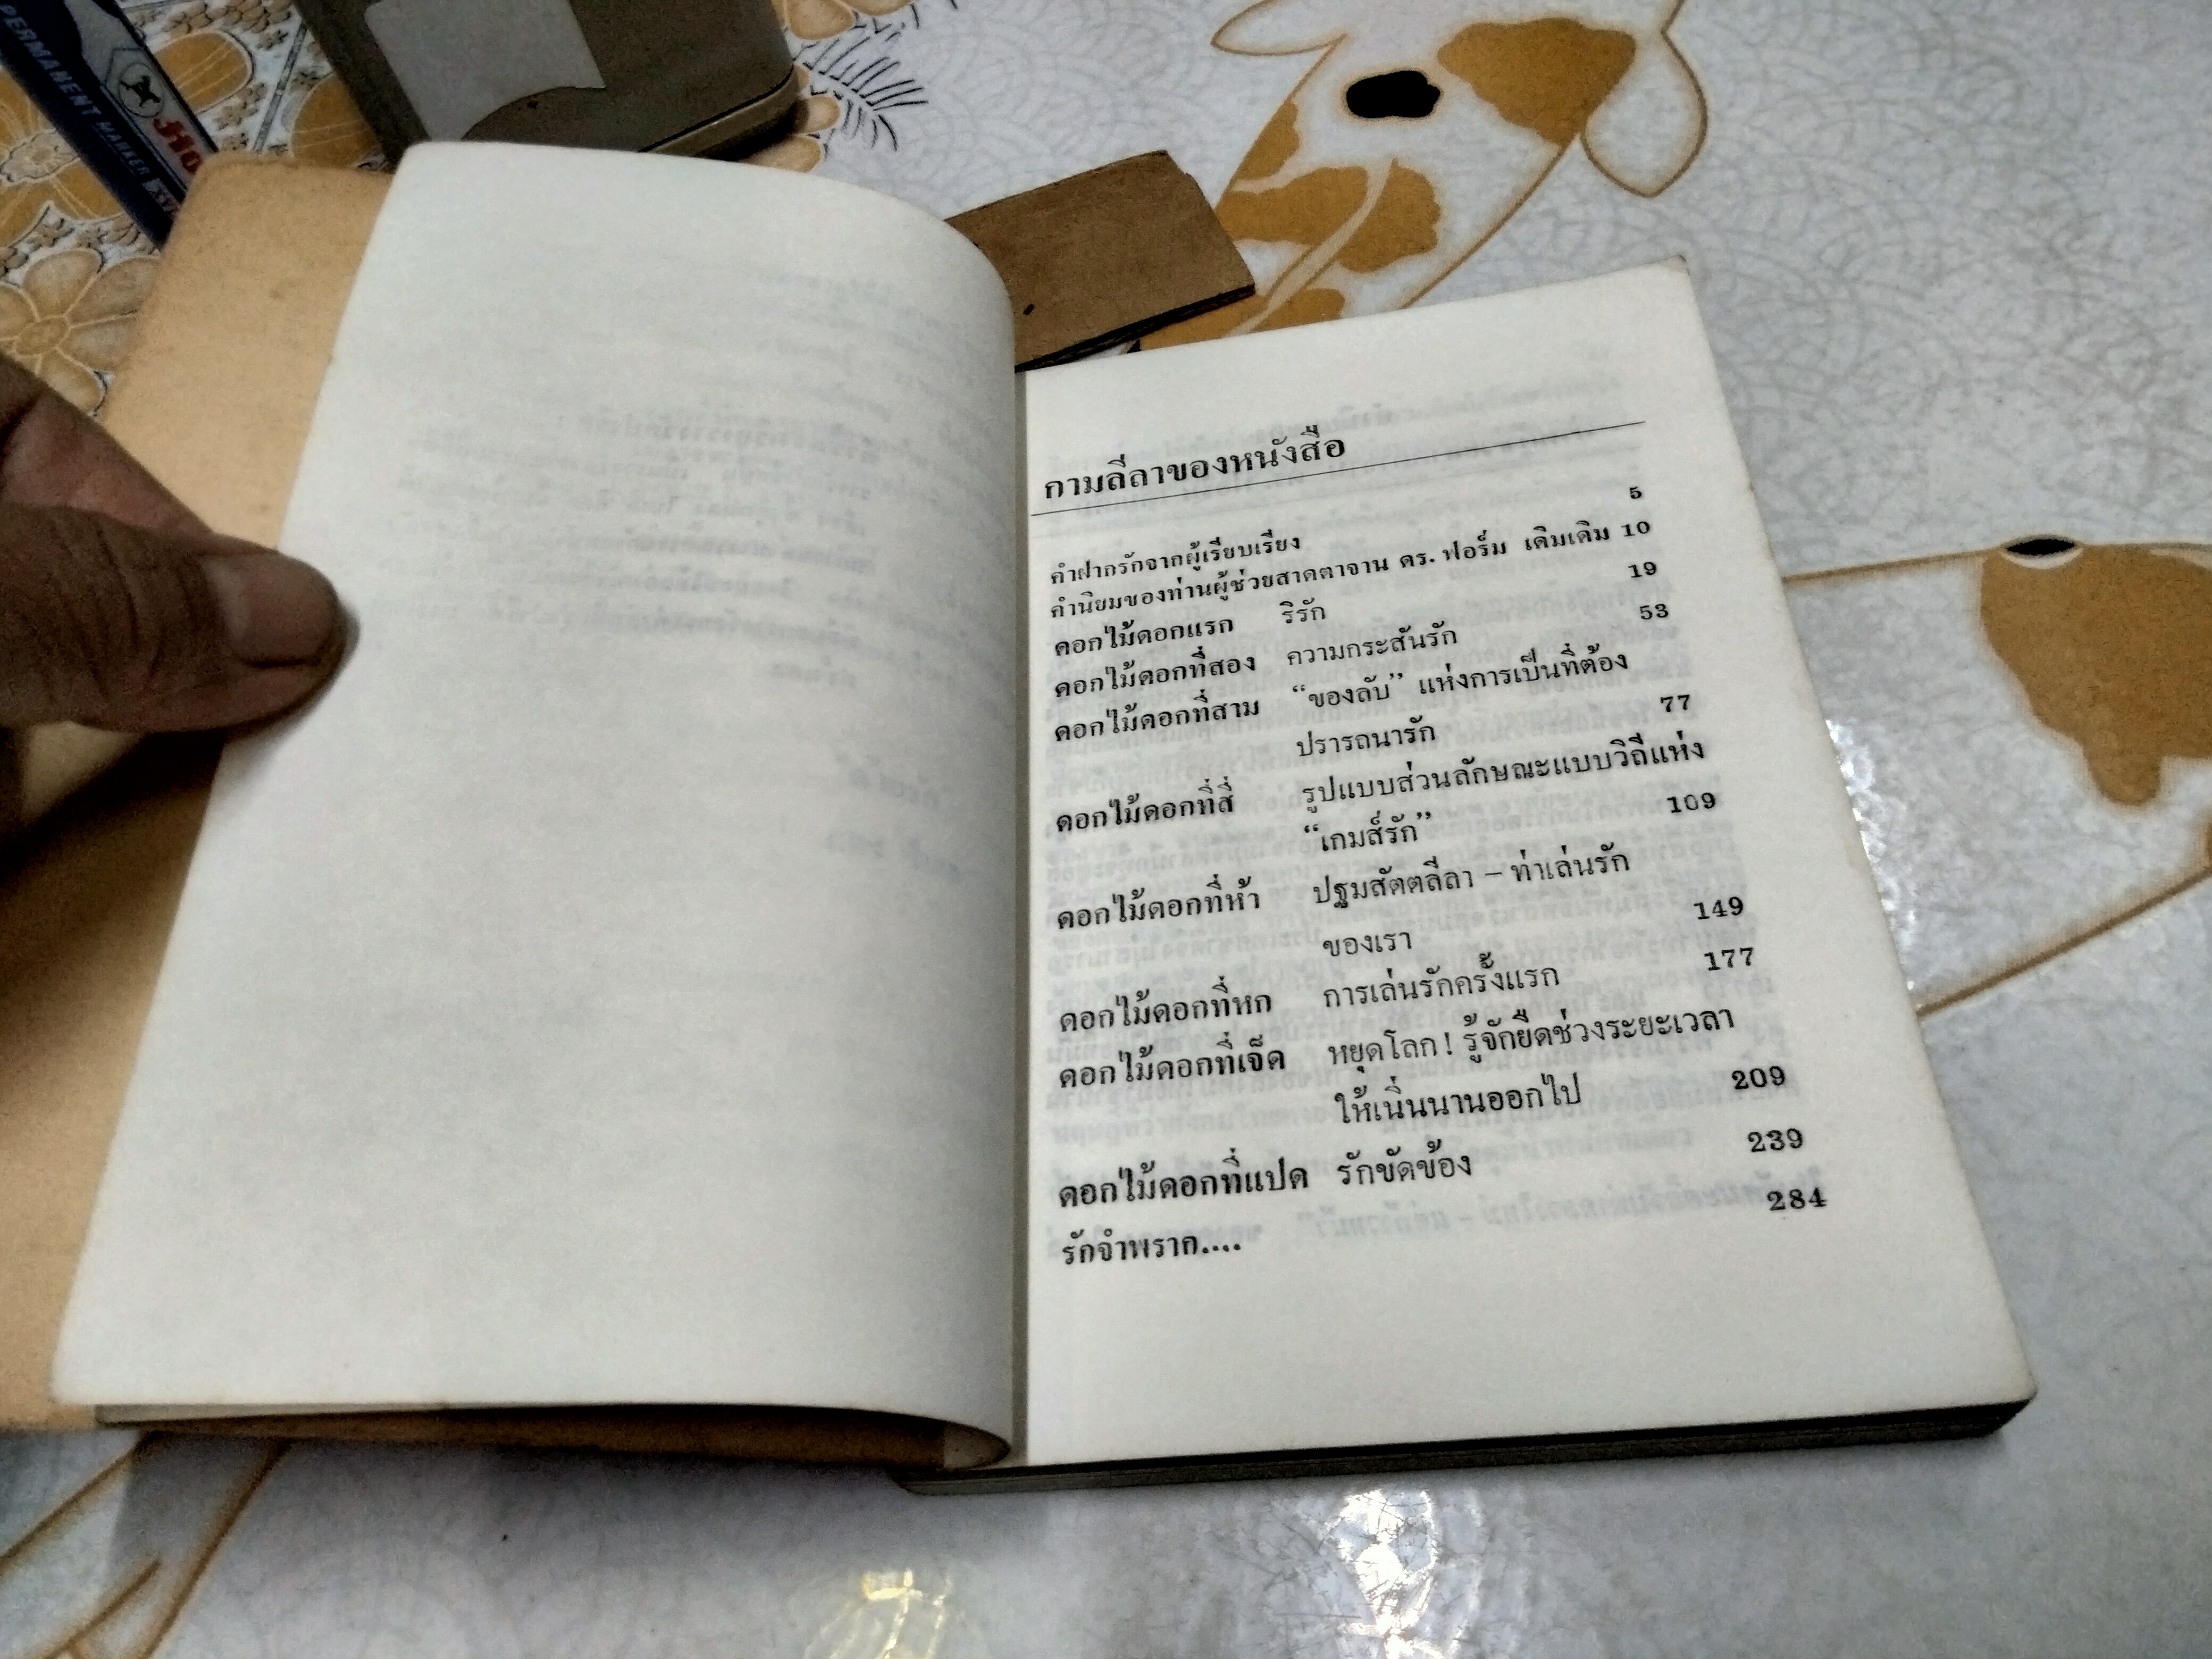 PERMANENT MARKER
กามลีลาของหนังสือ
คำฝากรักจากผู้เรียบเรียง 5
คำนิยมของท่านผู้ช่วยสาดตาจาน ดร. ฟอร์ม เดิมเดิม 10
ดอกไม้ดอกแรก ริรัก 19
ดอกไม้ดอกที่สอง ความกระสันรัก 53
ดอกไม้ดอกที่สาม “ของลับ” แห่งการเป็นที่ต้อง
ปรารถนารัก 77
ดอกไม้ดอกที่สี่ รูปแบบส่วนลักษณะแบบวิถีแห่ง
“เกมส์รัก” 109
ดอกไม้ดอกที่ห้า ปฐมสัตตลีลา – ท่าเล่นรัก
ของเรา 149
ดอกไม้ดอกที่หก การเล่นรักครั้งแรก 177
ดอกไม้ดอกที่เจ็ด หยุดโลก! รู้จักยืดช่วงระยะเวลา
ให้เนิ่นนานออกไป 209
ดอกไม้ดอกที่แปด รักขัดข้อง 239
รักจำพราก.... 284